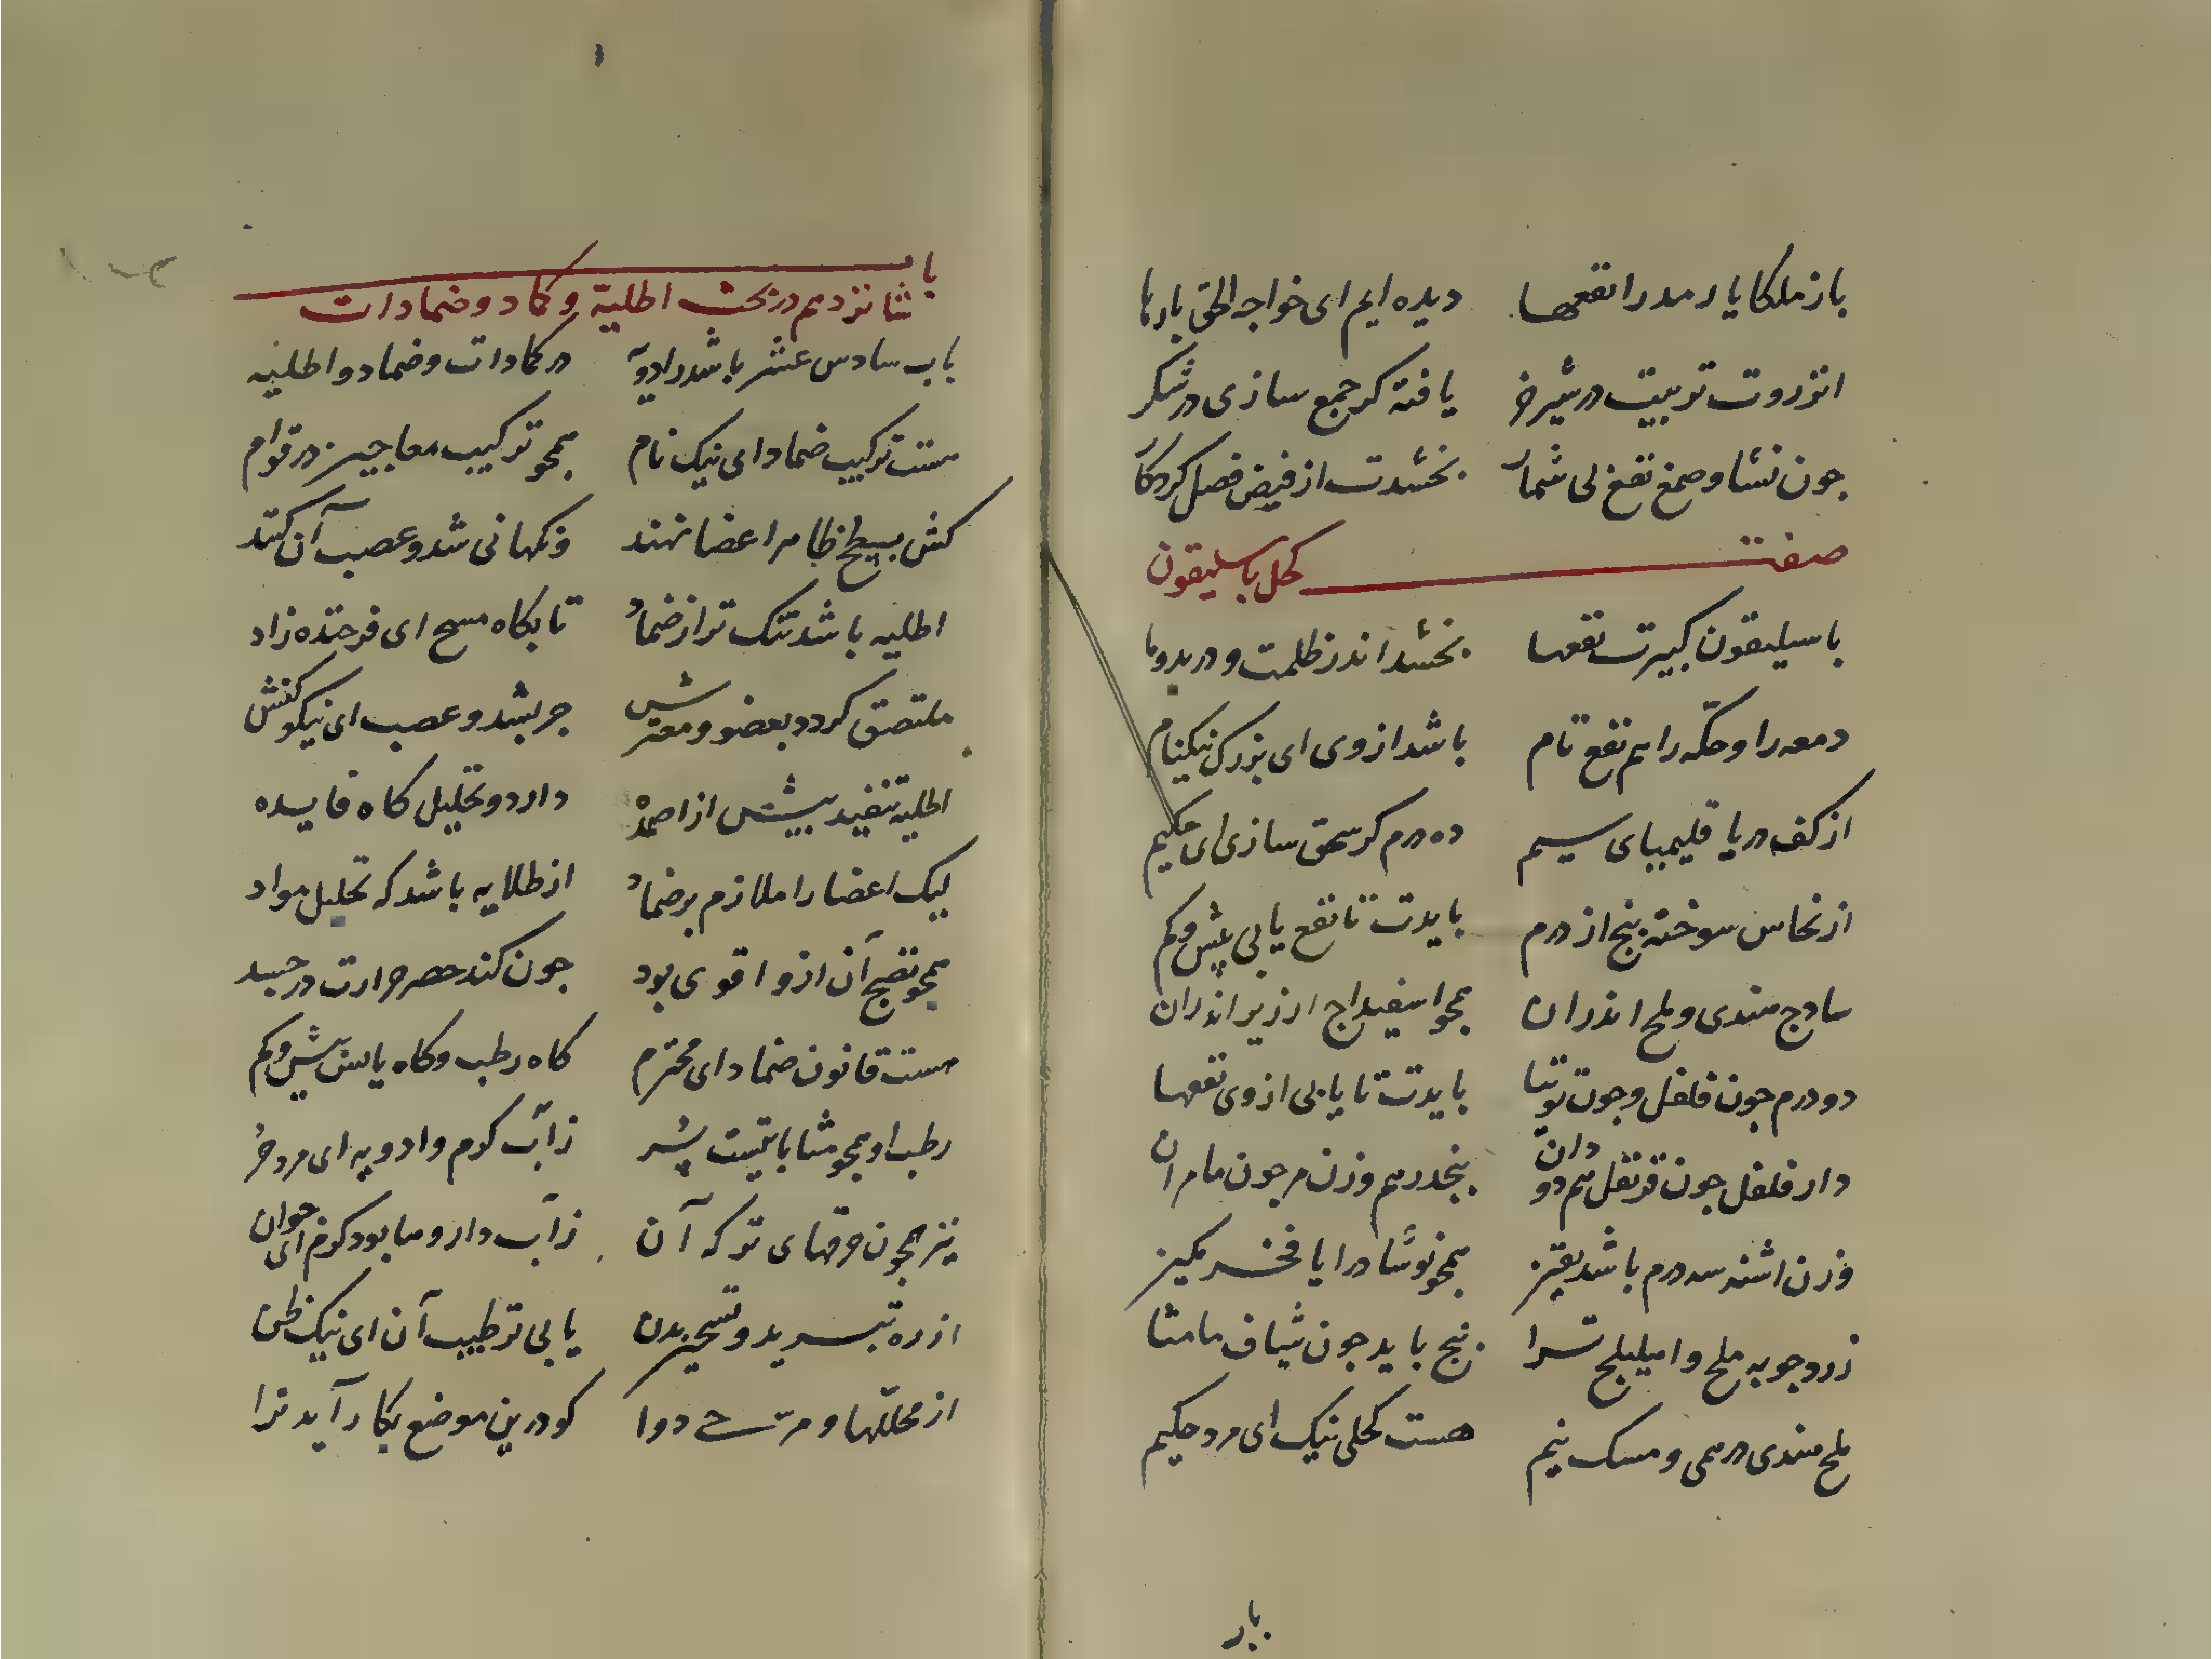 باز ملکایا رمد را نفعها دیده ایم ای خواجه الحق بارها
انزروت تربیت در شیر خر یافته کر جمع سازی در شکر
چون نشا و صمغ نفع بی شمار بخشدت از فیض فضل کردکار
صفت کحل باسلیقون
باسیلیقون کبیرت نفعها بخشد اندر ظلمت و در بدوها
دمعه را و حکّه را هم نفع تام باشد از وی ای بزرک نیکنام
از کف دریا قلیمیای سیم ده درم کر سحق سازی ای حکیم
از نحاس سوخته پنج از درم بایدت تا نفع یابی بیش و کم
سادج هندی و ملح اندران همجو اسفیداج ارزیر اندران
دو درم جون فلفل و جون توتیا بایدت تا یابی از وی نفعها
دار فلفل جون قرنفل هم دو دان پنجدرهم وزن هر جون مامران
وزن اشنه سه درم باشد بقیز همجو نوشادر ایا فخر مکیز
زردجوبه ملح و امیلیلج ترا پنج باید جون شیاف مامثا
ملح هندی درهمی و مسک نیم هست کحلی نیک ای مرد حکیم
بار
باب
شانزدهم در بحث اطلیة و کماد و ضمادات
باب سادس عشر باشد رادویَه در کمادات و ضماد و اطلیه
هست ترکیب ضماد ای نیک نام همجو ترکیب معاجین در قوام
کش بسطح ظاهر اعضا نهند ونکهانی شد و عصب آن کنند
اطلیه باشد تنک تر از ضماد تا بکاه مسح ای فرخنده زاد
ملتصق کردد بعضو و مفترش جز بشد و عصب ای نیکو کنش
اطلیه تنفید بیشش از اضمده دارد و تحلیل کاه فایده
لیک اعضا را ملازم بر ضماد از طلایه باشد که تحلیل مواد
همجو نضج آن ازو اقوی بود جون کند حصر حرارت در جسد
هست قانون ضماد ای محترم کاه رطب و کاه یابس بیش و کم
رطب او همجو مثابا تیست پُر زآب کرم و ادویه ای مرد حر
نیز همجون خرقهای تر که آن زآب دارو ها بود کرم ای جوان
از ره تبرید و تسخین بدن یابی ترطیب آن ای نیک ظن
از محلّلها و مرخی دوا کو درین موضع بکار آید ترا